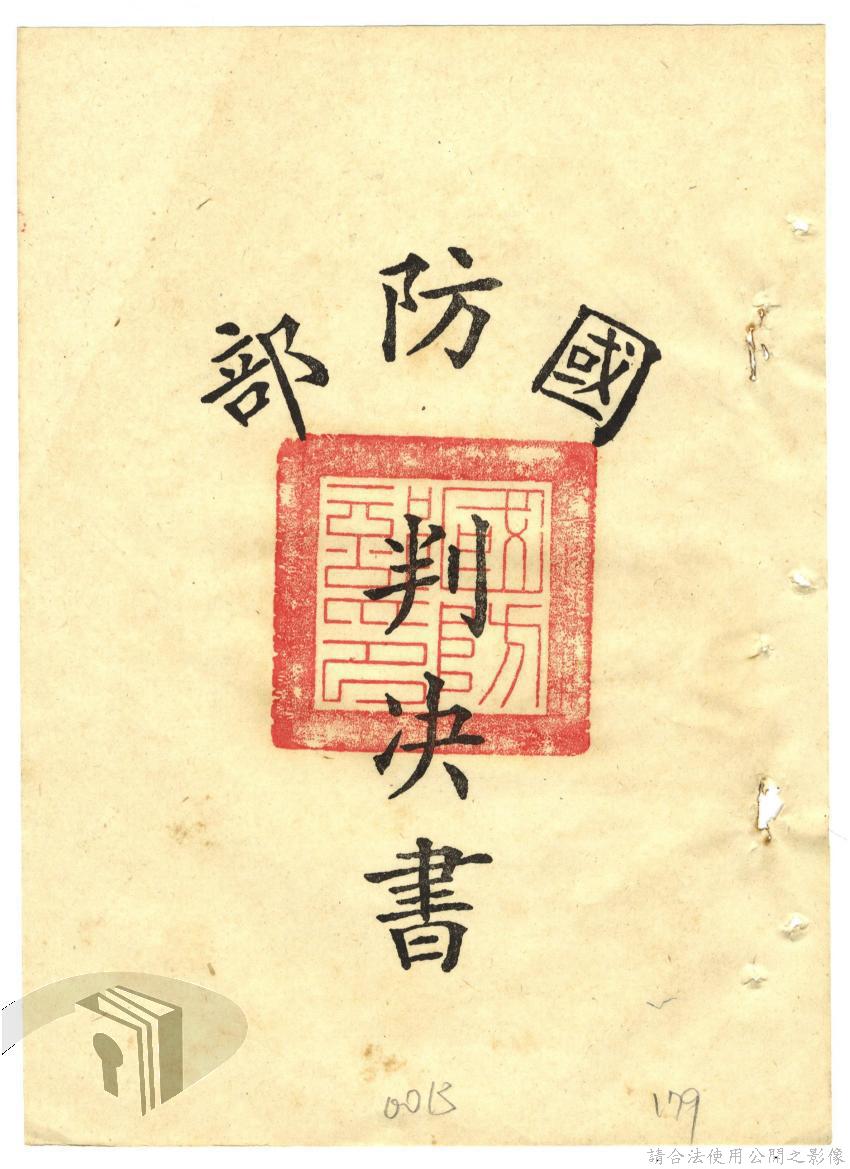 國防部
判決書
國防部印
0013
179
請合法使用公開之影像